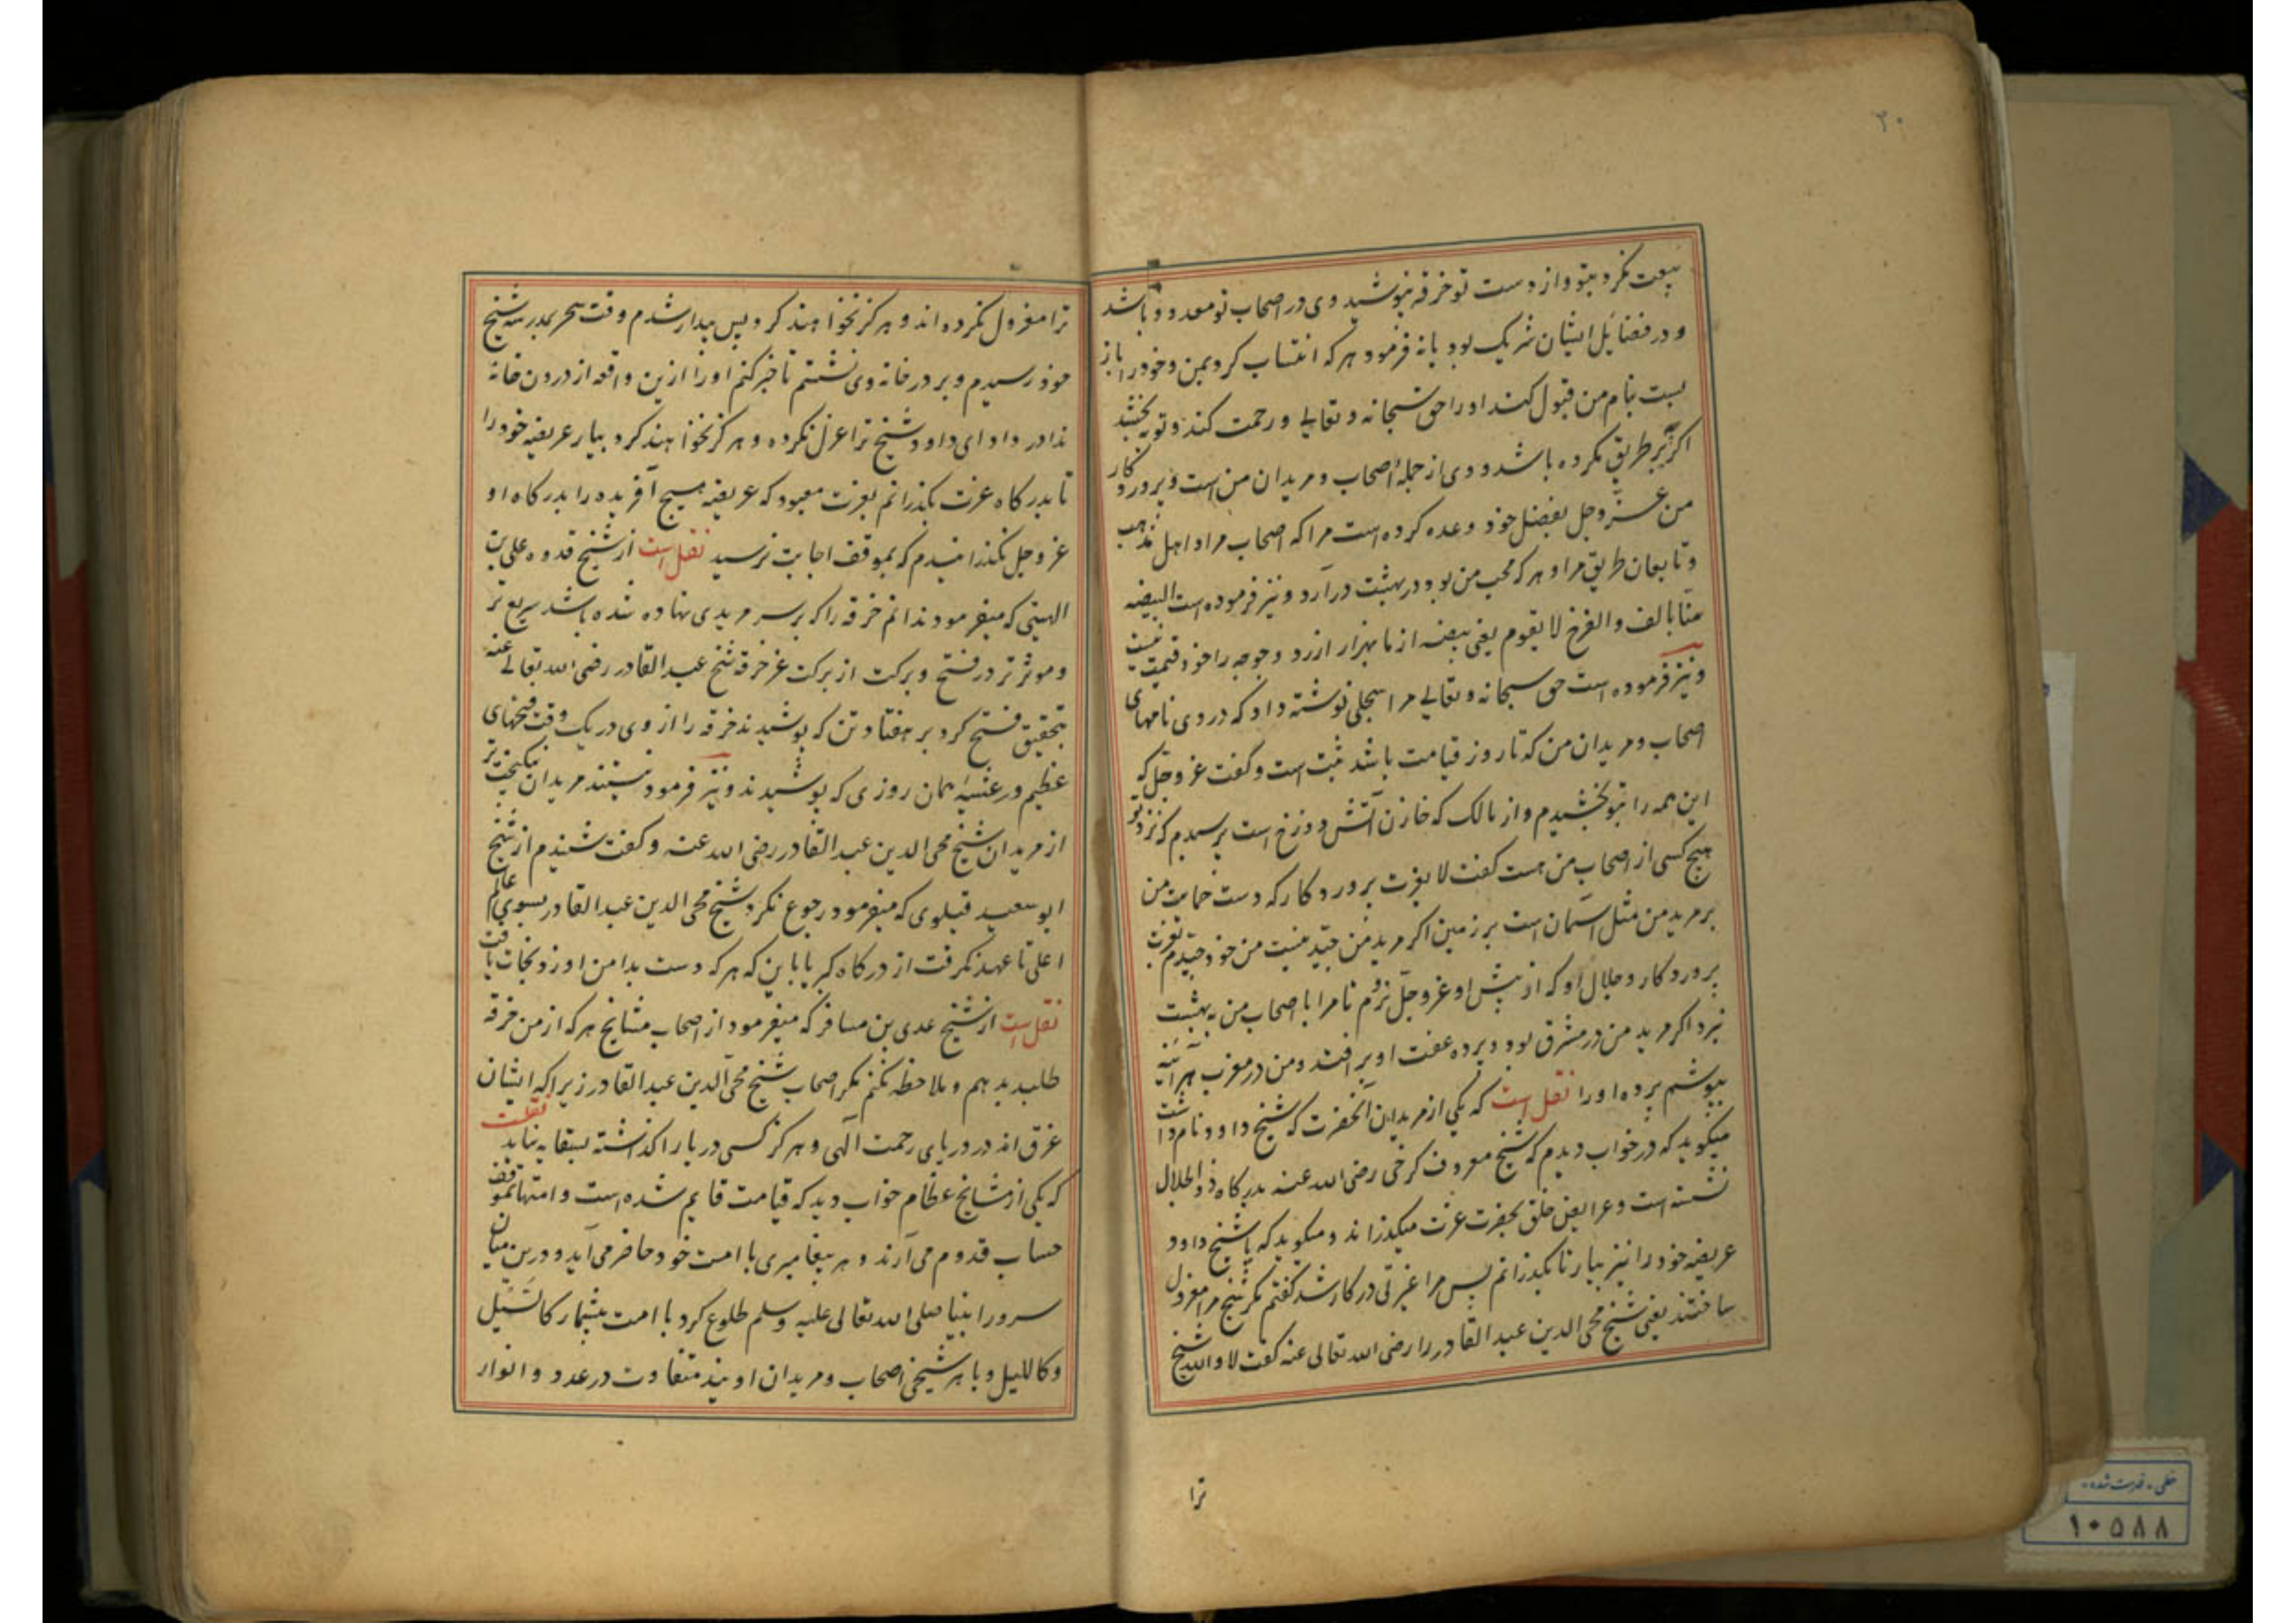 ۲۰
بیعت نکرد بتو و از دست تو خرقه نپوشید وی در اصحاب تو معدود باشد
و در فضایل ایشان شریک بود یا نه فرمود هر که انتساب کرد بمن و خود را باز
بست بنام من قبول کند او را حق سبحانه و تعالی و رحمت کند و توبه بخشد
اگر چه بر طریق مکروه باشد و وی از جملهٔ اصحاب و مریدان من است و پروردکار
من عز وجل بفضل خود وعده کرده است مرا که اصحاب مرا و اهل مذهب
و تابعان طریق مرا و هر که محب من بود در بهشت درآرد و نیز فرموده است البیضه
منّا بالف و الفرخ لا یقوم یعنی بیضه از ما بهزار ارزد و جوجه را خود قیمت نیست
و نیز فرموده است حق سبحانه و تعالی مرا سجلی نوشته داد که در وی نامهای
اصحاب و مریدان من که تا روز قیامت باشد ثبت است و گفت عز و جل که
این همه را بتو بخشیدم و از مالک که خازن آتش دوزخ است پرسیدم که نزد تو
هیچ کسی از اصحاب من هست گفت لا بعزت پروردکار که دست حمایت من
بر مرید من مثل آسمان است بر زمین اگر مرید من جیّد نیست من خود جیّدم بعزت
پروردکار و جلال او که از پیش او عز و جلّ نروم تا مرا با اصحاب من به بهشت
نبرد اگر مرید من در مشرق بود و پرده عفت او برافتد و من در مغرب هر آئینه
بپوشم پرده او را نقل است که یکی از مریدان آنحضرت که شیخ داود نام داشت
میگوید که در خواب دیدم که شیخ معروف کرخی رضی الله عنه بدرکاه ذو الجلال
نشسته است و عرایض خلق بحضرت عزت میگذراند و میگوید که یا شیخ داود
عریضه خود را نیز بیار تا بگذرانم پس مرا غیرتی در کار شد گفتم مکر شیخ مرا معزول
ساختند یعنی شیخ محی الدین عبد القادر را رضی الله تعالی عنه گفت لا والله شیخ
ترا
ترا معزول نکرده اند و هرکز نخواهند کرد پس بیدار شدم وقت سحر بمدرسه شیخ
خود رسیدم و بر در خانه وی نشستم تا خبر کنم او را ازین واقعه از درون خانه
ندا در داد ای داود شیخ ترا عزل نکرده و هرکز نخواهند کرد بیار عریضه خود را
تا بدرکاه عزت بکذرانم بعزت معبود که عریضه هیچ آفریده را بدرکاه او
عز وجل نکذرانیدم که بموقف اجابت نرسید نقل است از شیخ قدوه علی بن
الهیتی که میفرمود ندانم خرقه را که بر سر مریدی نهاده شده باشد سریع تر
و موثر تر در فتح و برکت از برکت خرقه شیخ عبد القادر رضی الله تعالی عنه
بتحقیق فتح کرد بر هفتاد تن که پوشیدند خرقه را از وی در یک وقت فتحهای
عظیم در عشیه همان روزی که پوشیدند و نیز فرمود نیستند مریدان نیکبخت تر
از مریدان شیخ محی الدین عبد القادر رضی الله عنه و گفت شنیدم از شیخ
ابو سعید قیلوی که میفرمود رجوع نکرد شیخ محی الدین عبد القادر بسوی عالم
اعلی تا عهد نکرفت از درکاه کبریا باین که هر که دست بدامن او زد نجات یافت
نقل است از شیخ عدی بن مسافر که میفرمود از اصحاب مشایخ هر که از من خرقه
طلبد بدهم و ملاحظه نکنم مکر اصحاب شیخ محی الدین عبد القادر زیرا که ایشان
غرق اند در دریای رحمت الهی و هرکز کسی دریا را گذاشته بسقایه نیاید نقلست
که یکی از مشایخ عظام خواب دید که قیامت قایم شده است و امتها بموقف
حساب قدوم می آرند و هر پیغامبری با امت خود حاضر می آید و درین میان
سرور انبیا صلی الله تعالی علیه وسلم طلوع کرد با امت بیشمار کالسیل
و کاللیل و با هر شیخی اصحاب و مریدان اویند متفاوت در عدد و انوار
خطی - فهرست شده -
۱۰۵۸۸